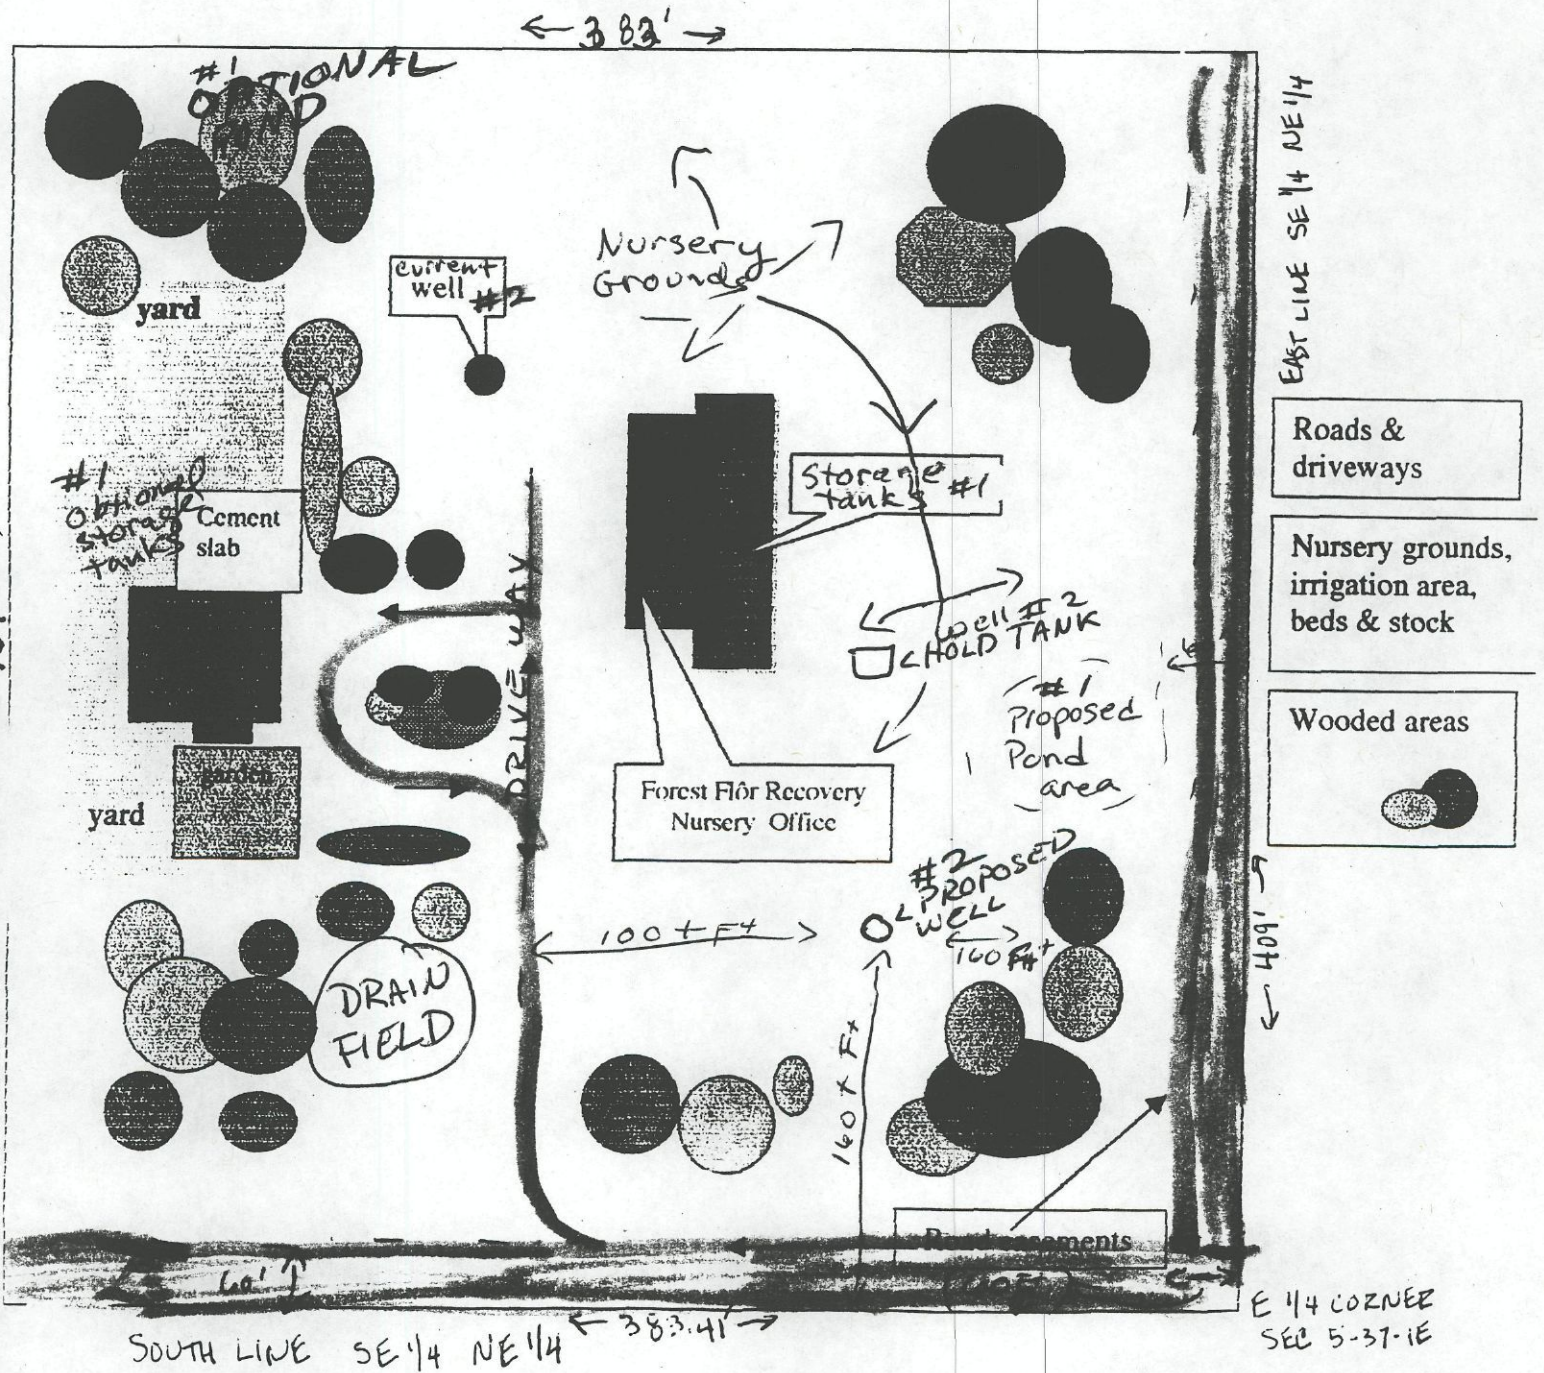 ← 383' →
#1
OPTIONAL
POND
yard
current
well #2
Nursery
Grounds
EAST LINE SE 1/4 NE 1/4
Roads &
driveways
Nursery grounds,
irrigation area,
beds & stock
Wooded areas
#1
optional
storage
tanks
Cement
slab
Storage
tanks #1
DRIVEWAY
well #2
<HOLD TANK
#1
Proposed
Pond
area
garden
yard
Forest Flôr Recovery
Nursery Office
#2
<PROPOSED
WELL
100 + Ft
160 Ft+
160 + Ft
← 409' →
DRAIN
FIELD
Road easements
60'
← 383.41' →
SOUTH LINE SE 1/4 NE 1/4
E 1/4 CORNER
SEC 5-37-1E